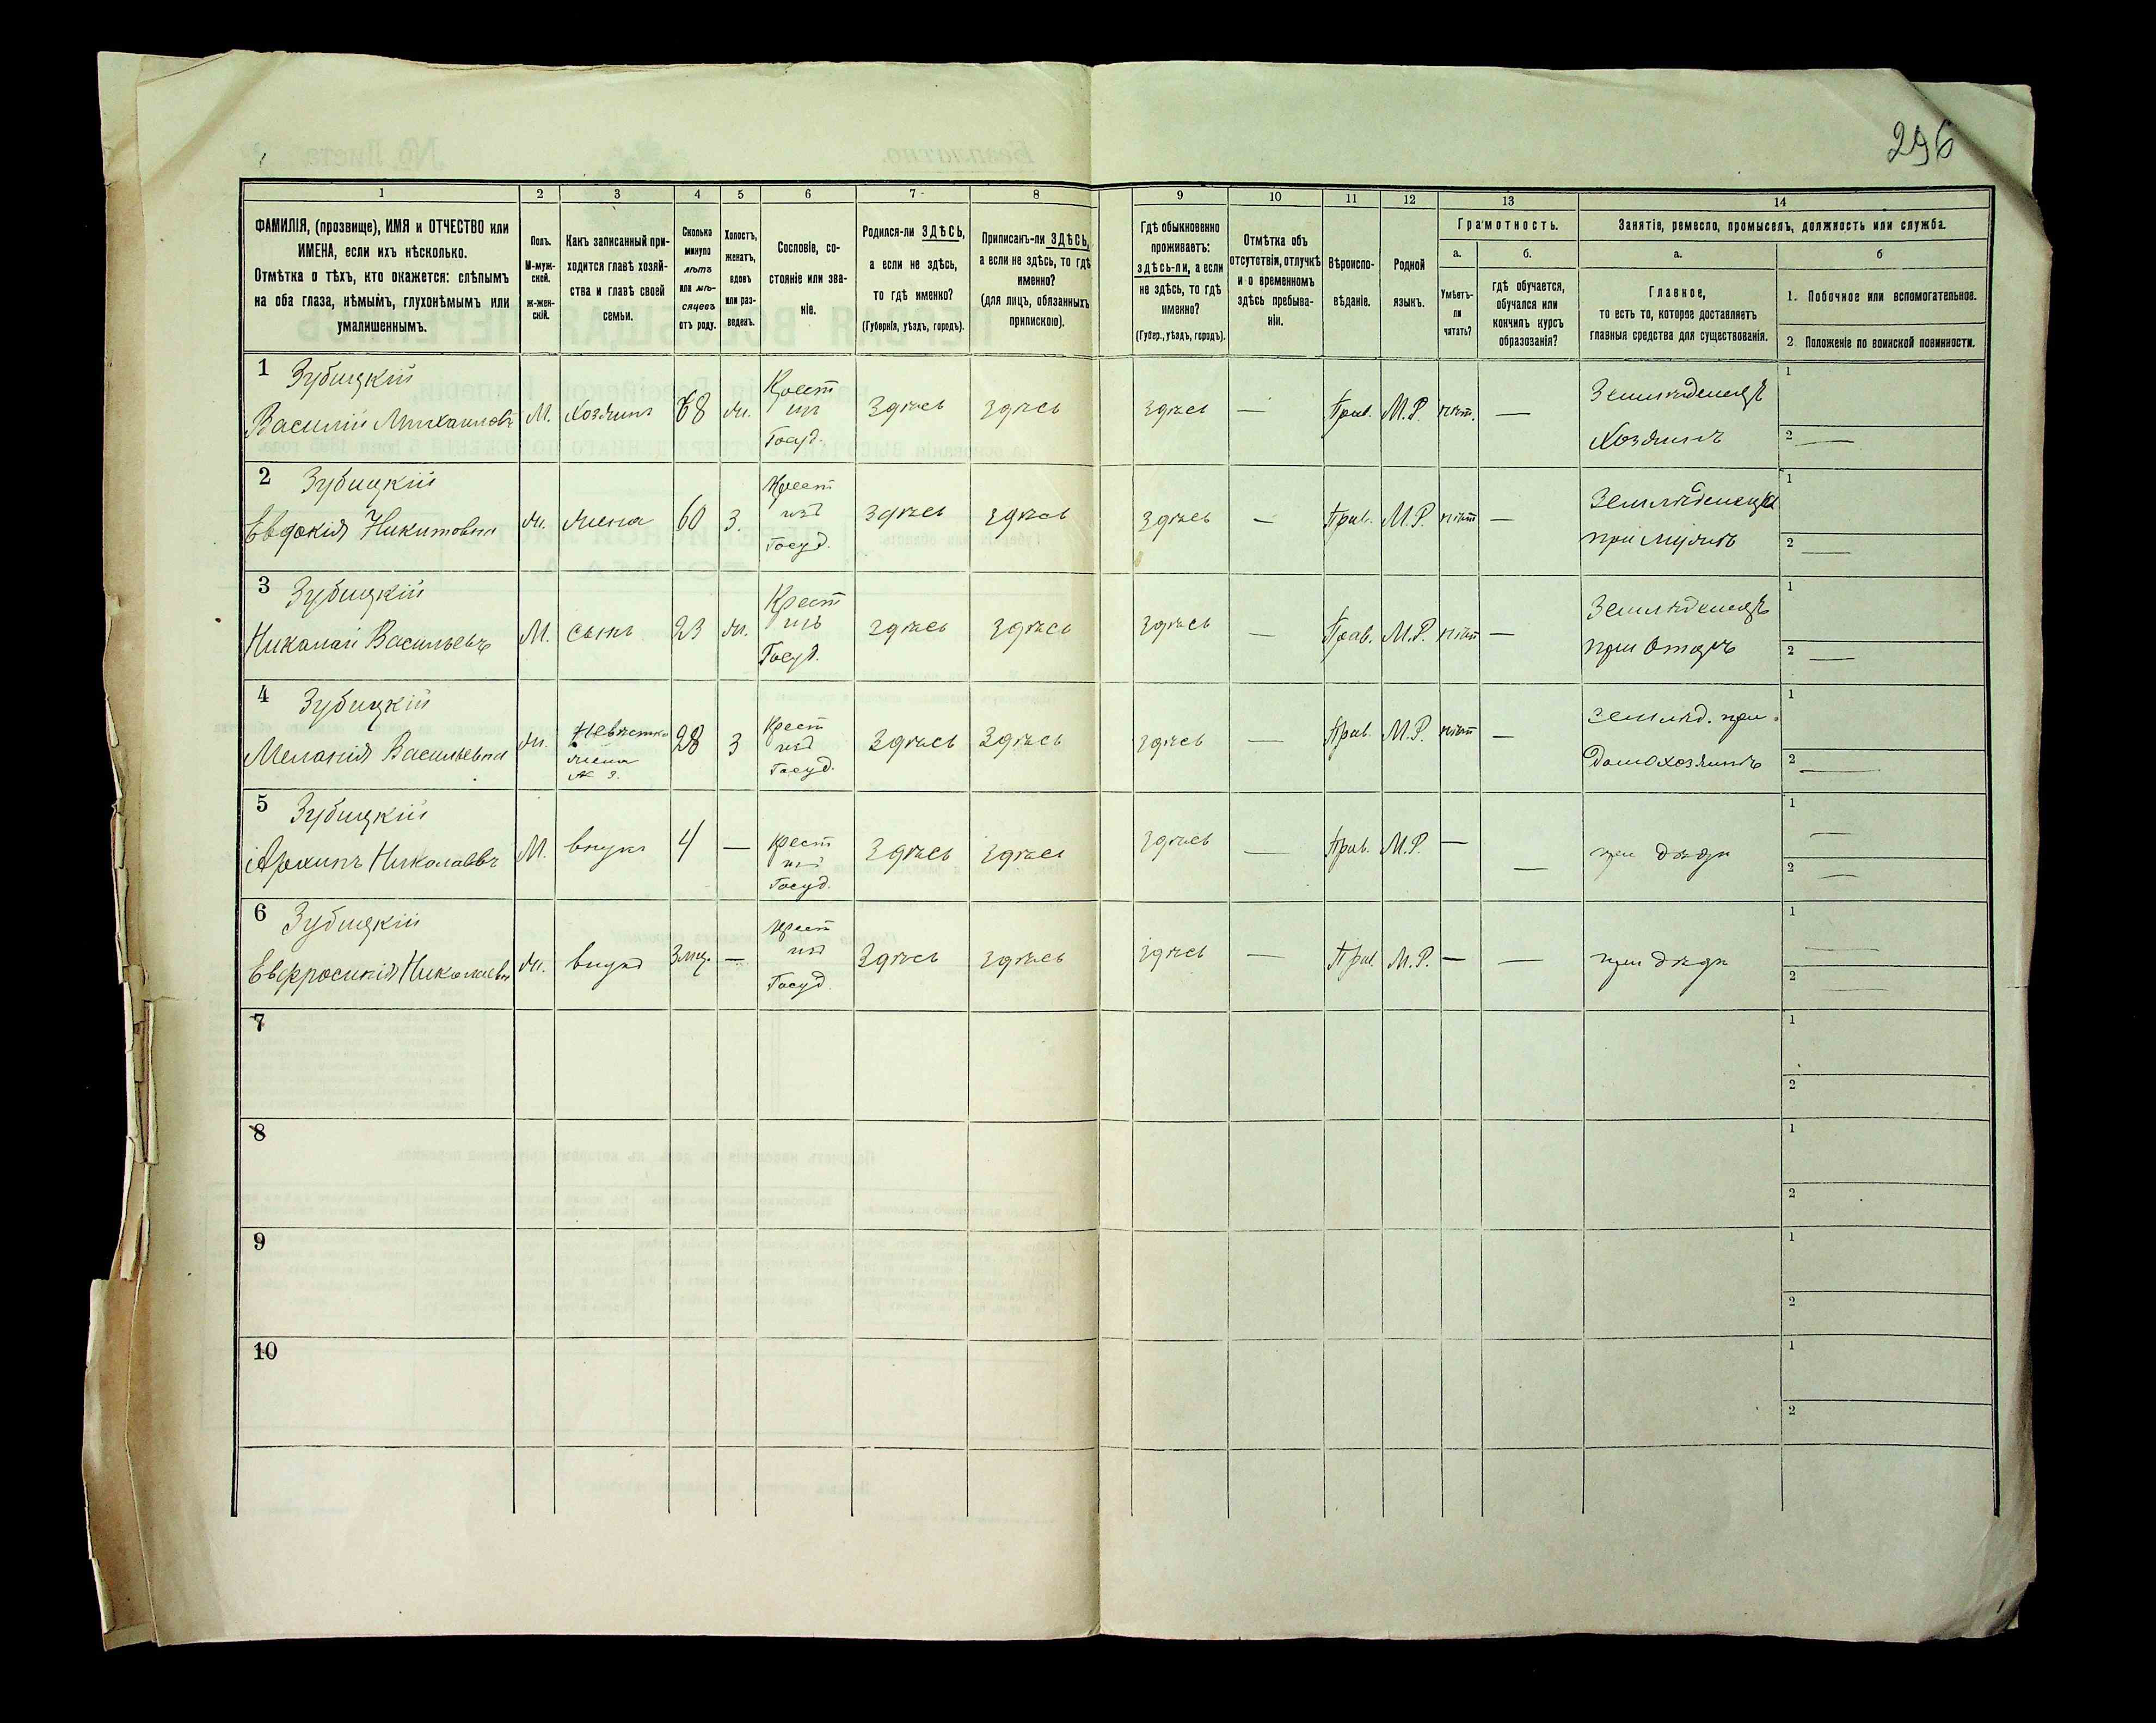 296
1 2 3 4 5 6 7 8 9 10 11 12 13 14
ФАМИЛІЯ, (прозвище), ИМЯ и ОТЧЕСТВО или
ИМЕНА, если ихъ нѣсколько.
Отмѣтка о тѣхъ, кто окажется: слѣпымъ
на оба глаза, нѣмымъ, глухонѣмымъ или
умалишеннымъ.
Полъ.
М-муж-
ской.
ж-жен-
скій.
Какъ записанный при-
ходится главѣ хозяй-
ства и главѣ своей
семьи.
Сколько
минуло
лѣтъ
или мѣ-
сяцевъ
отъ роду.
Холостъ,
женатъ,
вдовъ
или раз-
веденъ.
Сословіе, со-
стояніе или зва-
ніе.
Родился-ли ЗДѢСЬ,
а если не здѣсь,
то гдѣ именно?
(Губернія, уѣздъ, городъ).
Приписанъ-ли ЗДѢСЬ,
а если не здѣсь, то гдѣ
именно?
(для лицъ, обязанныхъ
припискою).
Гдѣ обыкновенно
проживаетъ:
здѣсь-ли, а если
не здѣсь, то гдѣ
именно?
(Губер., уѣздъ, городъ).
Отмѣтка объ
отсутствіи, отлучкѣ
и о временномъ
здѣсь пребыва-
ніи.
Вѣроиспо-
вѣданіе.
Родной
языкъ.
Грамотность.
а.
Умѣетъ-
ли
читать?
б.
гдѣ обучается,
обучался или
кончилъ курсъ
образованія?
Занятіе, ремесло, промыселъ, должность или служба.
а.
Главное,
то есть то, которое доставляетъ
главныя средства для существованія.
б
1. Побочное или вспомогательное.
2 Положеніе по воинской повинности.
1 Зубицкій
Василій Михаиловъ М. Хозяинъ 68 ж. Крест изъ Госуд. Здѣсь здѣсь здѣсь — Прав. М.Р. нѣт. — Земледелецъ Хозяинъ 1
2 —
2 Зубицкій
Евдокія Никитовна ж. жена 60 З. Крест изъ Госуд. Здѣсь здѣсь здѣсь — Прав. М.Р. нѣт — при мужѣ 1
2 —
3 Зубицкій
Николай Васильевъ М. сынъ 23 ж. Крест изъ Госуд. здѣсь здѣсь здѣсь — Прав. М.Р. нѣт — Земледелецъ при Отцѣ 1
2 —
4 Зубицкій
Меланія Васильевна ж. Невѣстка жена № 3. 28 З Крест изъ Госуд. Здѣсь Здѣсь здѣсь — Прав. М.Р. нѣт — землед. при Домохозяинѣ 1
2 —
5 Зубицкій
Архипъ Николаевъ М. внукъ 4 — Крест изъ Госуд. Здѣсь здѣсь здѣсь — Прав. М.Р. — — при дѣдѣ 1 —
2 —
6 Зубицкій
Евфросинія Николаевн ж. внука 3 мц. — Крест изъ Госуд. Здѣсь здѣсь здѣсь — Прав. М.Р. — — при дѣдѣ 1 —
2 —
7 1
2
8 1
2
9 1
2
10 1
2